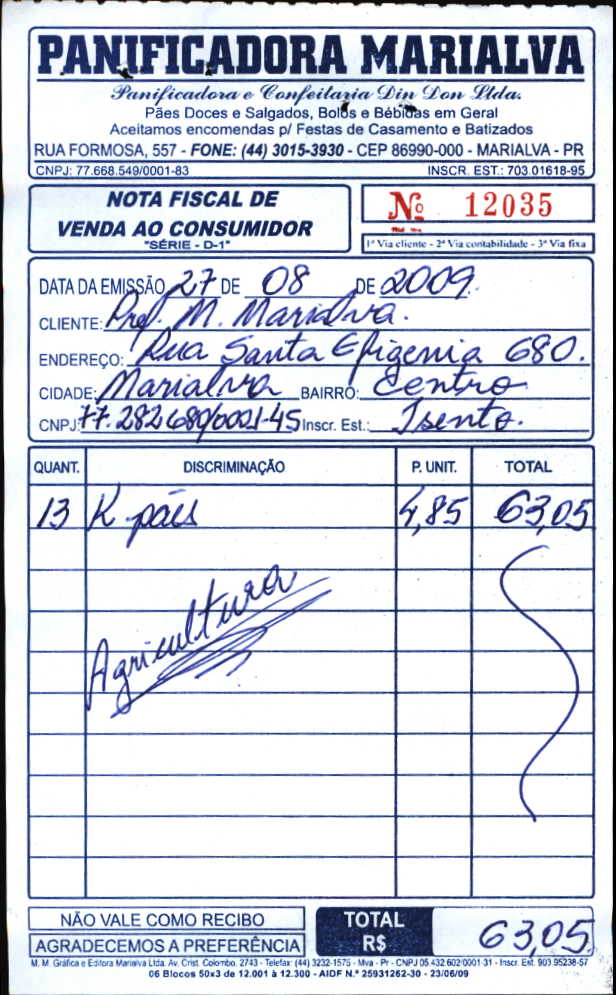 PANIFICADORA MARIALVA
Panificadora e Confeitaria Din Don Ltda.
Pães Doces e Salgados, Bolos e Bebidas em Geral
Aceitamos encomendas p/ Festas de Casamento e Batizados
RUA FORMOSA, 557 - FONE: (44) 3015-3930 - CEP 86990-000 - MARIALVA - PR
CNPJ: 77.668.549/0001-83 INSCR. EST.: 703.01618-95
NOTA FISCAL DE
VENDA AO CONSUMIDOR
"SÉRIE - D-1"
Nº 12035
1ª Via cliente - 2ª Via contabilidade - 3ª Via fixa
DATA DA EMISSÃO 27 DE 08 DE 2009.
CLIENTE: Pref. M. Marialva.
ENDEREÇO: Rua Santa Efigenia 680.
CIDADE: Marialva BAIRRO: Centro
CNPJ: 77.282.680/0001-45 Inscr. Est.: Isento.
QUANT. DISCRIMINAÇÃO P. UNIT. TOTAL
13 K pães 4,85 63,05
Agricultura
NÃO VALE COMO RECIBO
AGRADECEMOS A PREFERÊNCIA
TOTAL
R$ 63,05
M. M. Gráfica e Editora Marialva Ltda. Av. Crist. Colombo, 2743 - Telefax: (44) 3232-1575 - Mva - Pr - CNPJ 05.432.602/0001-31 - Inscr. Est. 903.95238-57
06 Blocos 50x3 de 12.001 à 12.300 - AIDF N.º 25931262-30 - 23/06/09